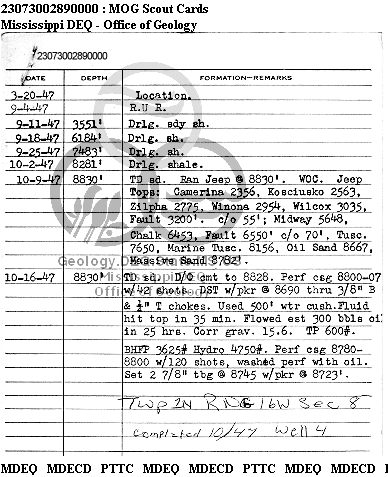 23073002890000 : MOG Scout Cards
Mississippi DEQ - Office of Geology
23073002890000
DATE DEPTH FORMATION—REMARKS
3-20-47 Location.
9-4-47 R.U R.
9-11-47 3551' Drlg. sdy sh.
9-18-47 6184' Drlg. sh.
9-25-47 7483' Drlg. sh.
10-2-47 8281' Drlg. shale.
10-9-47 8830' TD sd. Ran Jeep @ 8830'. WOC. Jeep
Tops: Camerina 2356, Kosciusko 2563,
Zilpha 2775, Winona 2954, Wilcox 3035,
Fault 3200'. c/o 55'; Midway 5648,
Chalk 6453, Fault 6550' c/o 70', Tusc.
7650, Marine Tusc. 8156, Oil Sand 8667,
Massive Sand 8782'.
10-16-47 8830' TD sd. D/O cmt to 8828. Perf csg 8800-07
w/42 shots. DST w/pkr @ 8690 thru 3/8" B
& ¼" T chokes. Used 500' wtr cush. Fluid
hit top in 35 min. Flowed est 300 bbls oil
in 25 hrs. Corr grav. 15.6. TP 600#.
BHFP 3625# Hydro 4750#. Perf csg 8780-
8800 w/120 shots, washed perf with oil.
Set 2 7/8" tbg @ 8745 w/pkr @ 8723'.
TWP 2N RNG 16W Sec 8
Completed 10/47 Well 4
MDEQ MDECD PTTC MDEQ MDECD MDEQ MDECD